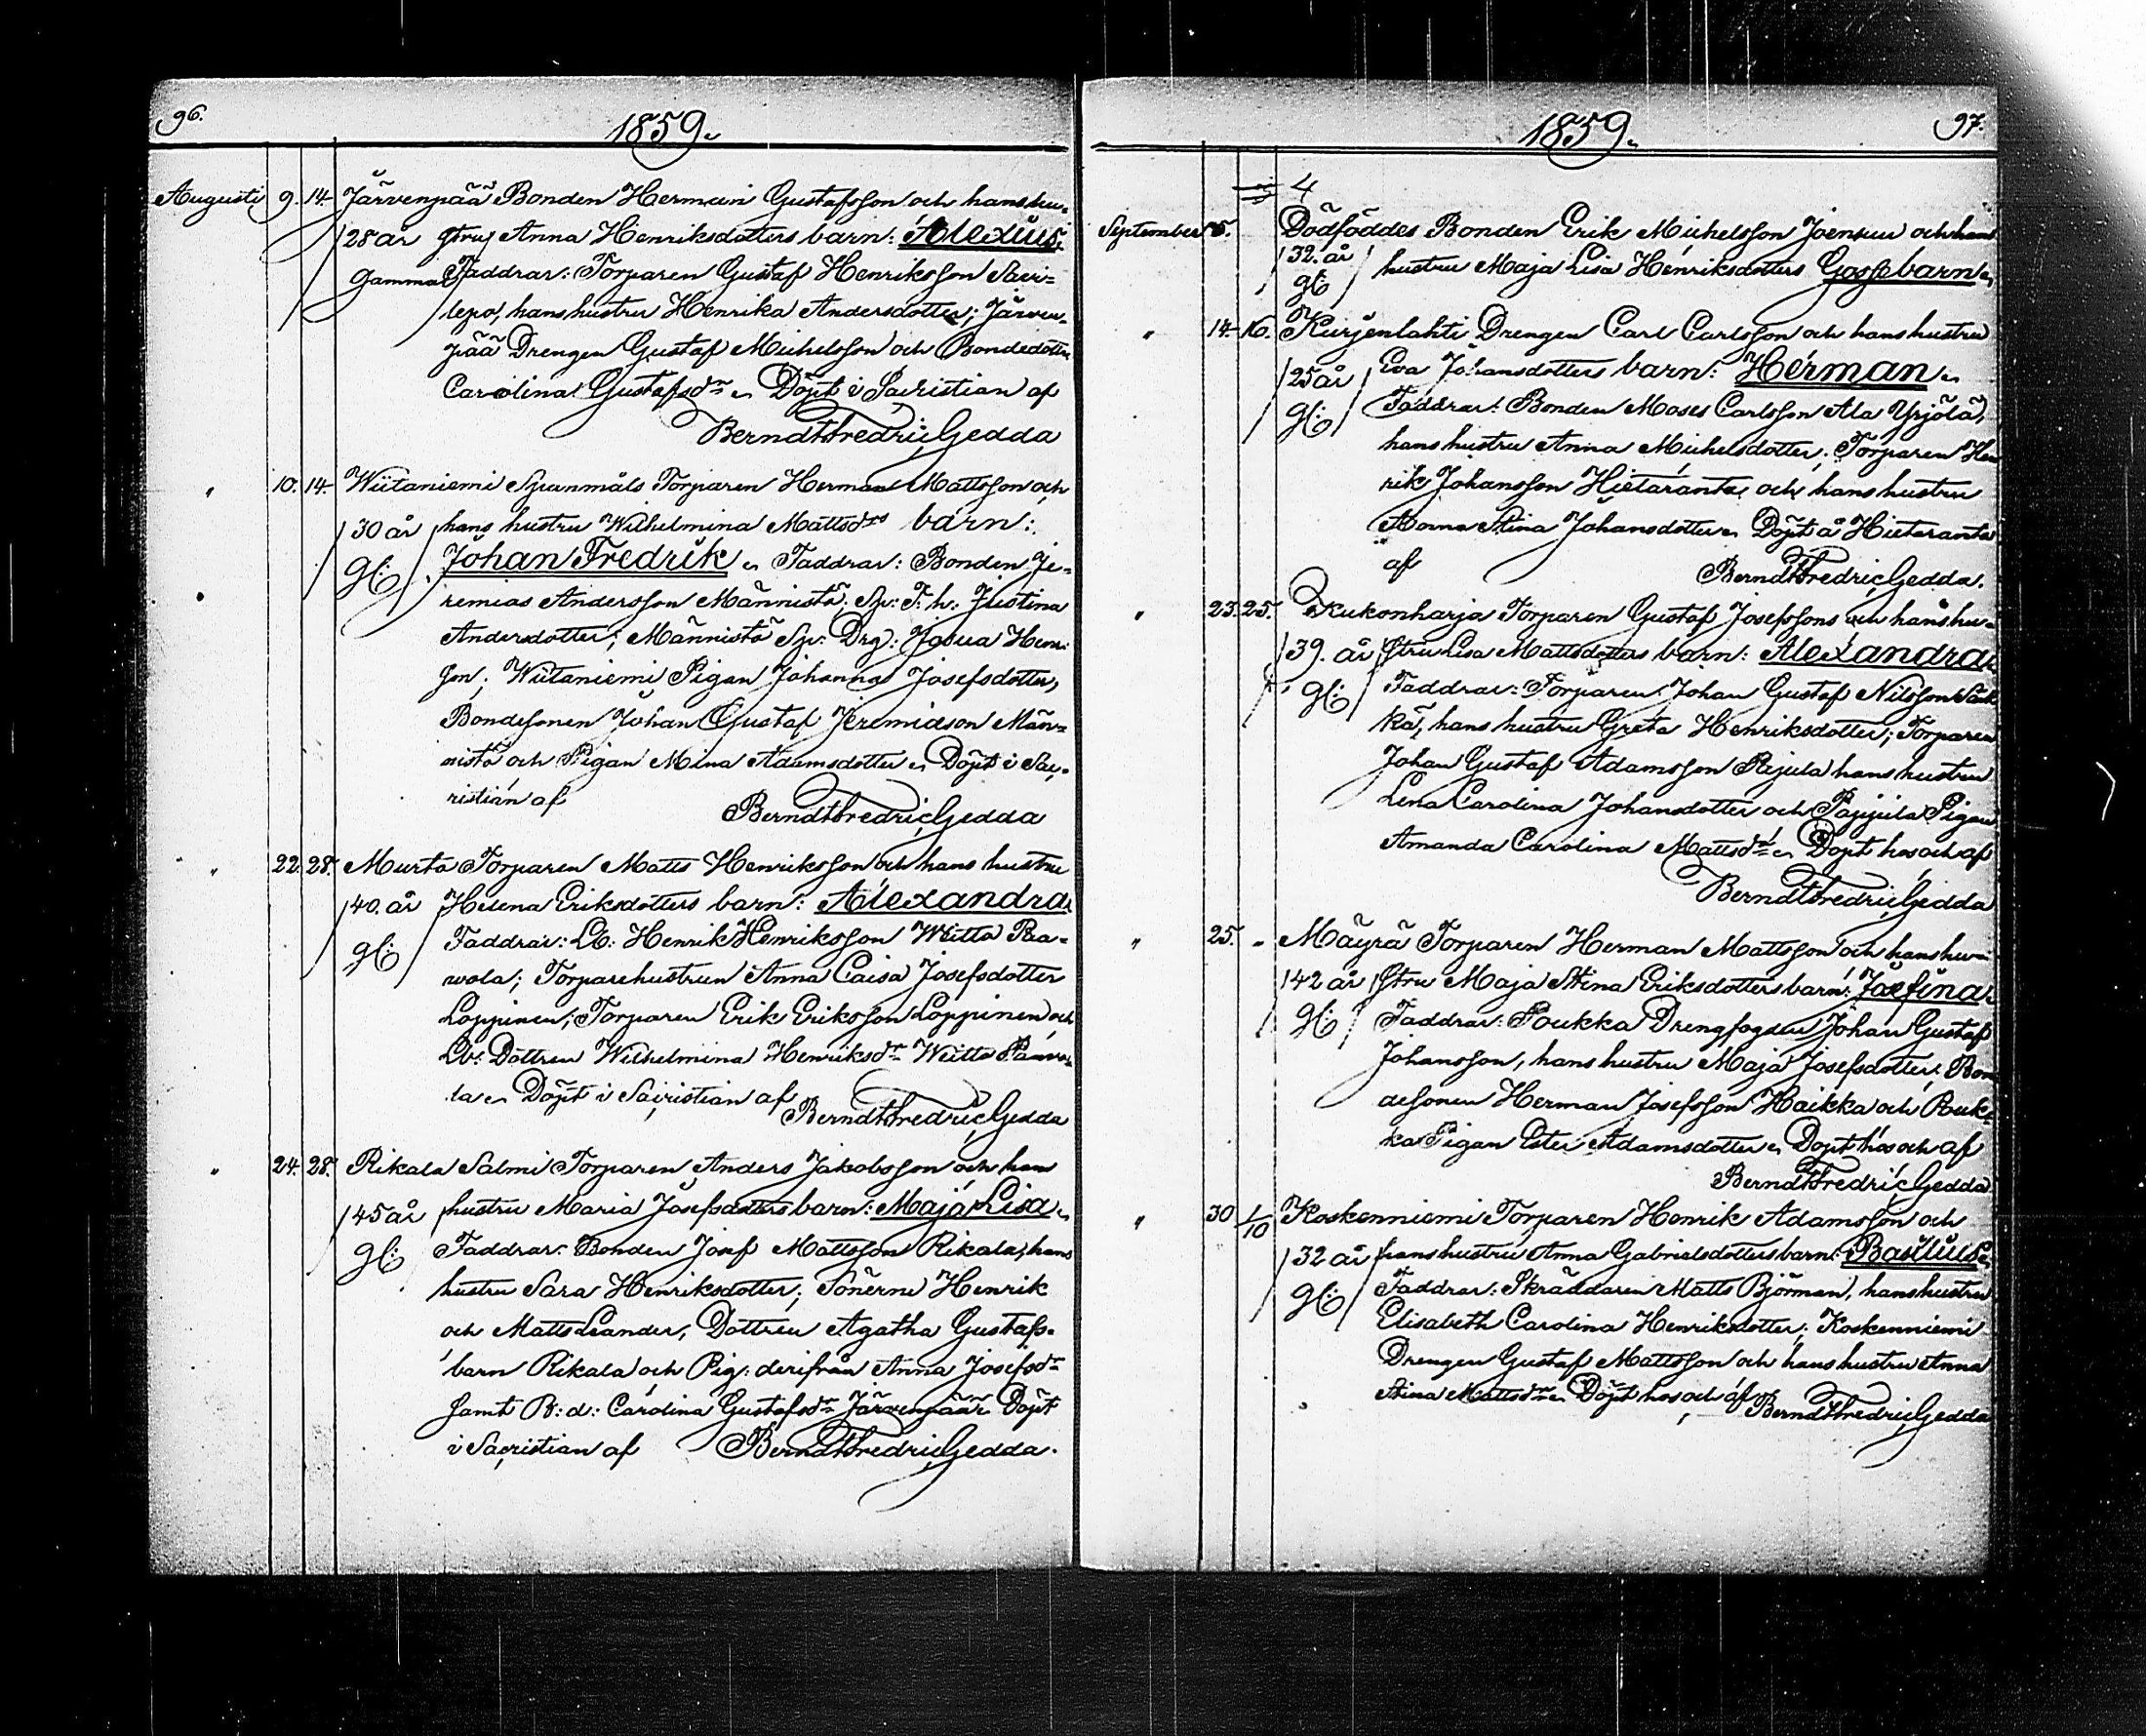 96.
1859.
Augusti 9. 14. Järvenpää Bonden Herman Gustafsson och hans hu-
28 år stru Anna Henriksdotters barn: Alexius.
gammal Faddrar: Torparen Gustaf Henriksson
hans hustru Henrika Andersdotter; Järven-
pää Drengen Gustaf Michelsson och Bondedottren
Carolina Gustafsdr Döpt i Sacristian af
Berndt Fredric Gedda
" 10. 14. Wiitaniemi Spanmåls Torparen Herman Mattsson och
30 år hans hustru Wilhelmina Mattsdrs barn:
gl: Johan Fredrik Faddrar: Bonden Je-
remias Andersson Männistö. Sp: T. h: Justina
Andersdotter; Männistö Sp: Drg: Josua Henr:
son; Wiitaniemi Pigan Johanna Josefsdotter,
Bondesonen Johan Gustaf Jeremiason Män-
nistö och Pigan Mina Adamsdotter Döpt i Sac-
ristian af
Berndt Fredric Gedda
" 22. 28. Murto Torparen Matts Henriksson och hans hustru
40. år Helena Eriksdotters barn: Alexandra
gl: Faddrar: Lb: Henrik Henriksson Weitto Paa-
wola; Torparehustrun Anna Caisa Josefsdotter
Loppinen; Torparen Erik Eriksson Loppinen och
Lb: Dottren Wilhelmina Henriksdr Weitto Paavo-
la Döpt i Sacristian af
Berndt Fredric Gedda
" 24. 28. Rikala Salmi Torparen Anders Jakobsson och hans
45 år hustru Maria Josefsdotters barn: Maja Lisa
gl: Faddrar: Bonden Josef Mattsson Rikala, hans
hustru Sara Henriksdotter; Sönerne Henrik
och Matts Leander, Dottren Agatha Gustafs-
barn Rikala och Pig: derifrån Anna Josefsdr
samt B: d: Carolina Gustafsdr Järvenpää Döpt
i Sacristian af Berndt Fredric Gedda.
1859.
97.
4
September 5. Dödföddes Bonden Erik Michelsson Joensuu och hans
32. år hustru Maja Lisa Henriksdotters Gossebarn
gl:
" 14. 16. Kurjenlahti Drengen Carl Carlsson och hans hustru
25 år Eva Johansdotters barn: Herman
gl: Faddrar: Bonden Moses Carlsson Ala Yrjölä,
hans hustru Anna Michelsdotter; Torparen Hen
rik Johansson Hietaranta och hans hustru
Anna Stina Johansdotter Döpt å Hietaranta
af Berndt Fredric Gedda.
" 23. 25. Kukonharja Torparen Gustaf Josefssons och hans hu-
39. år stru Lisa Mattsdotters barn: Alexandra
gl: Faddrar: Torparen Johan Gustaf Nilsson
kä, hans hustru Greta Henriksdotter; Torparen
Johan Gustaf Adamsson Pajula hans hustru
Lena Carolina Johansdotter och Pappila Pigan
Amanda Carolina Mattsdr Döpt hos och af
Berndt Fredric Gedda
" 25. " Mäyrä Torparen Herman Mattsson och hans hu-
42 år stru Maja Stina Eriksdotters barn: Josefina
gl: Faddrar: Poukka Drengfogden Johan Gustaf
Johansson, hans hustru Maja Josefsdotter; Bon
desonen Herman Josefsson Haikka och Pouk-
ka Pigan Ester Adamsdotter Döpt hos och af
Berndt Fredric Gedda
" 30 1/10 Koskenniemi Torparen Henrik Adamsson och
32 år hans hustru Anna Gabrielsdotters barn: Basilius
gl: Faddrar: Skräddaren Matts Björman, hans hustru
Elisabeth Carolina Henriksdotter; Koskenniemi
Drengen Gustaf Mattsson och hans hustru Anna
Stina Mattsdr Döpt hos och af Berndt Fredric Gedda